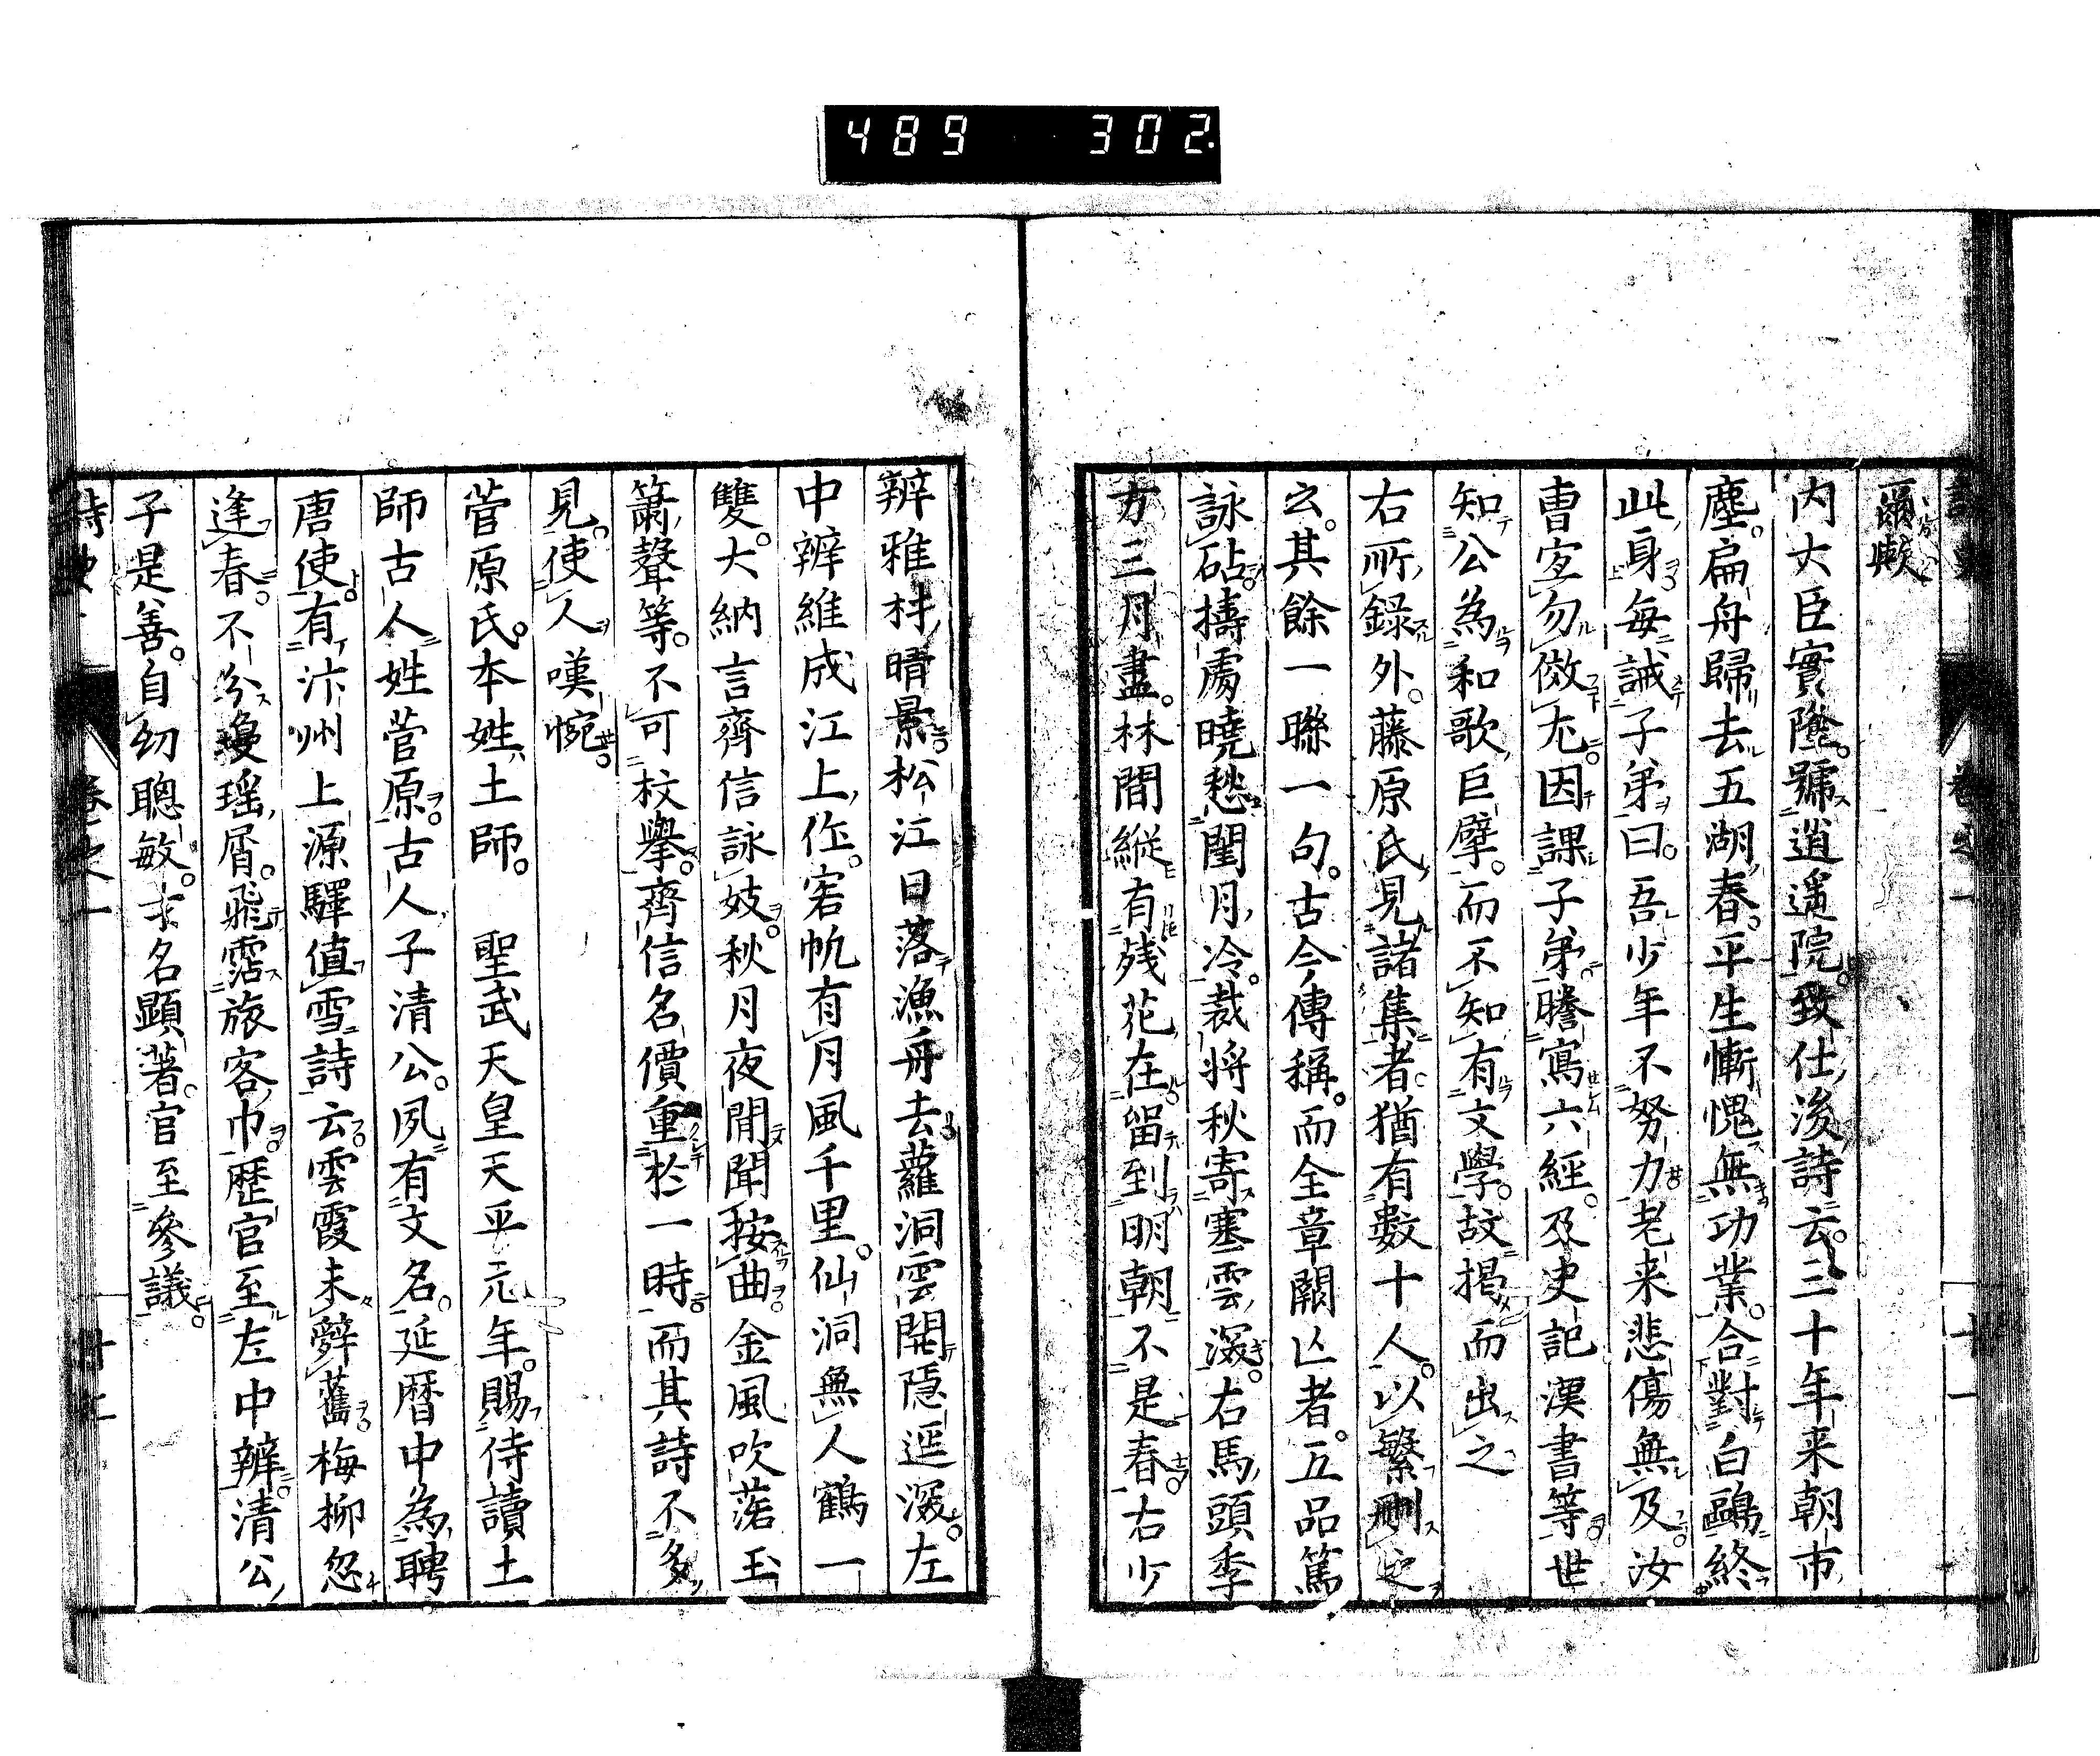 489 302
爾歟
内大臣實隆號逍遥院致仕後詩云三十年来朝市
塵扁舟歸去五湖春平生慚愧無功業合對白鷗終
此身毎誡子弟曰吾少年不努力老来悲傷無及汝
曹㝎勿傚尤因課子弟謄寫六經及史記漢書等世
知公為和歌巨擘而不知有文學故掲而出之
右所録外藤原氏見諸集者猶有數十人以繁刪之
云其餘一聯一句古今傳稱而全章闕亾者五品篤
詠砧擣處曉愁閨月冷裁將秋寄塞雲深右馬頭季
方三月盡林間縱有残花在留到明朝不是春右少
辨雅材晴景松江日落漁舟去蘿洞雲開隠逕深左
中辨維成江上作客帆有月風千里仙洞無人鶴一
雙大納言齊信詠妓秋月夜閒聞按曲金風吹落玉
簫聲等不可校擧齊信名價重於一時而其詩不多
見使人嘆惋
菅原氏本姓土師 聖武天皇天平元年賜侍讀土
師古人姓菅原古人子清公夙有文名延暦中為聘
唐使有汴州上源驛值雪詩云雲霞未辭舊梅柳忽
逢春不分瓊瑶屑飛霑旅客巾歴官至左中辨清公
子是善自幼聰敏才名顯著官至參議
詩史 卷之一